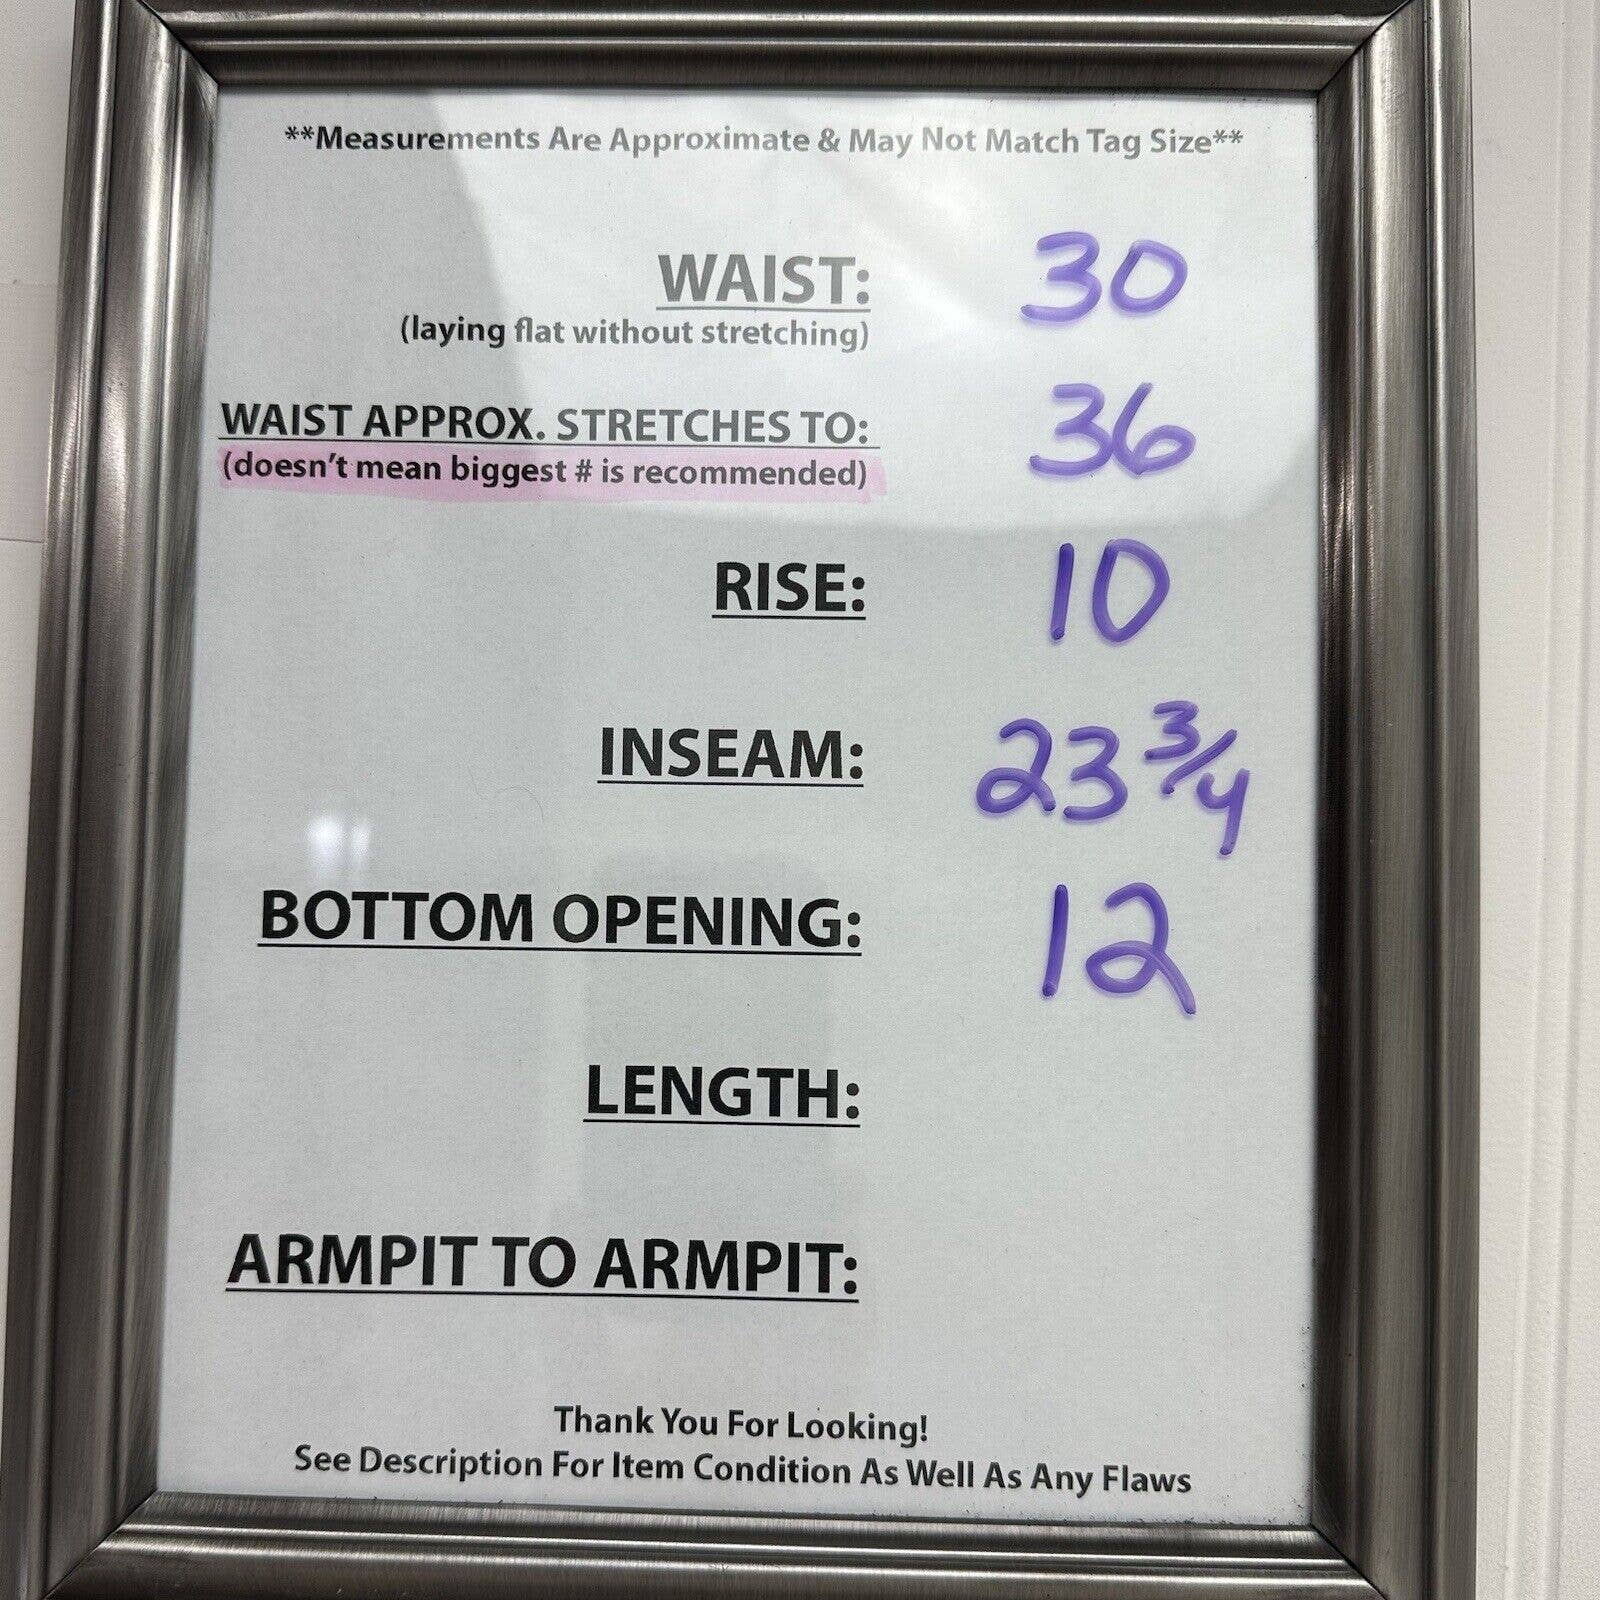 **Measurements Are Approximate & May Not Match Tag Size**
WAIST: 30
(laying flat without stretching)
WAIST APPROX. STRETCHES TO: 36
(doesn't mean biggest # is recommended)
RISE: 10
INSEAM: 23 3/4
BOTTOM OPENING: 12
LENGTH:
ARMPIT TO ARMPIT:
Thank You For Looking!
See Description For Item Condition As Well As Any Flaws